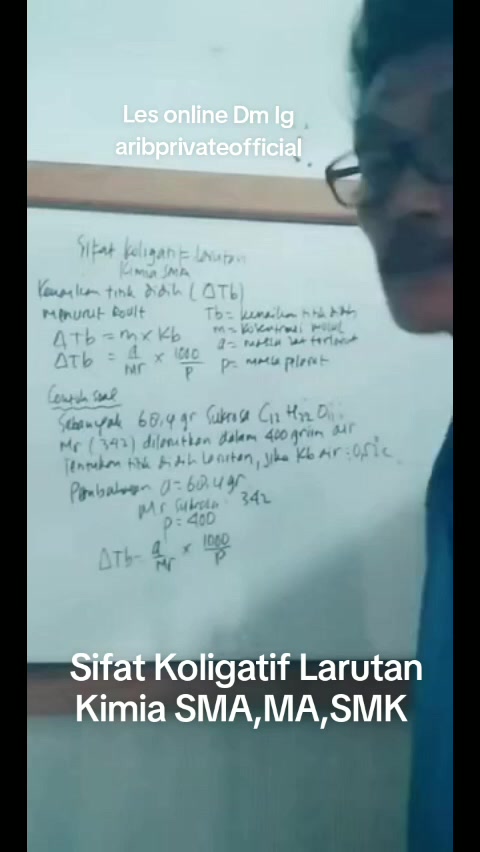 Les online Dm Ig
aribprivateofficial
Sifat koligatif Larutan
Kimia SMA
Kenaikan titik didih (ΔTb)
menurut Roult
Tb = kenaikan titik didih
ΔTb = m x Kb
m = konsentrasi molal
a = massa zat terlarut
ΔTb = a/Mr x 1000/P
p = massa pelarut
Contoh soal
Sebanyak 68,4 gr Sukrosa C12 H22 O11
Mr (342) dilarutkan dalam 400 gram air
Tentukan titik didih larutan, jika Kb air = 0,52°C
Pembahasan a = 68,4 gr
Mr Sukrosa = 342
p = 400
ΔTb = a/Mr x 1000/P
Sifat Koligatif Larutan
Kimia SMA,MA,SMK